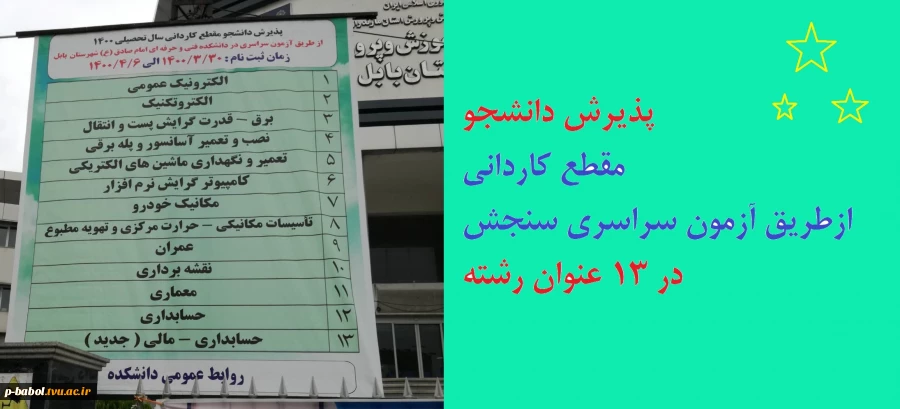 پذیرش دانشجو مقطع کاردانی سال تحصیلی ۱۴۰۰
از طریق آزمون سراسری در دانشکده فنی و حرفه ای امام صادق (ع) شهرستان بابل
زمان ثبت نام : ۱۴۰۰/۳/۳۰ الی ۱۴۰۰/۴/۶
۱ الکترونیک عمومی
۲ الکتروتکنیک
۳ برق – قدرت گرایش پست و انتقال
۴ نصب و تعمیر آسانسور و پله برقی
۵ تعمیر و نگهداری ماشین های الکتریکی
۶ کامپیوتر گرایش نرم افزار
۷ مکانیک خودرو
۸ تأسیسات مکانیکی – حرارت مرکزی و تهویه مطبوع
۹ عمران
۱۰ نقشه برداری
۱۱ معماری
۱۲ حسابداری
۱۳ حسابداری – مالی ( جدید )
روابط عمومی دانشکده
p-babol.tvu.ac.ir
پذیرش دانشجو
مقطع کاردانی
ازطریق آزمون سراسری سنجش
در ۱۳ عنوان رشته